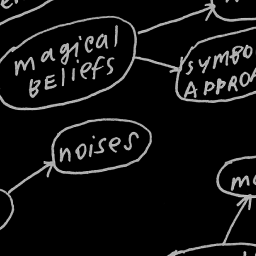 magical
BELIEFS
SYMBO
APPROA
noises